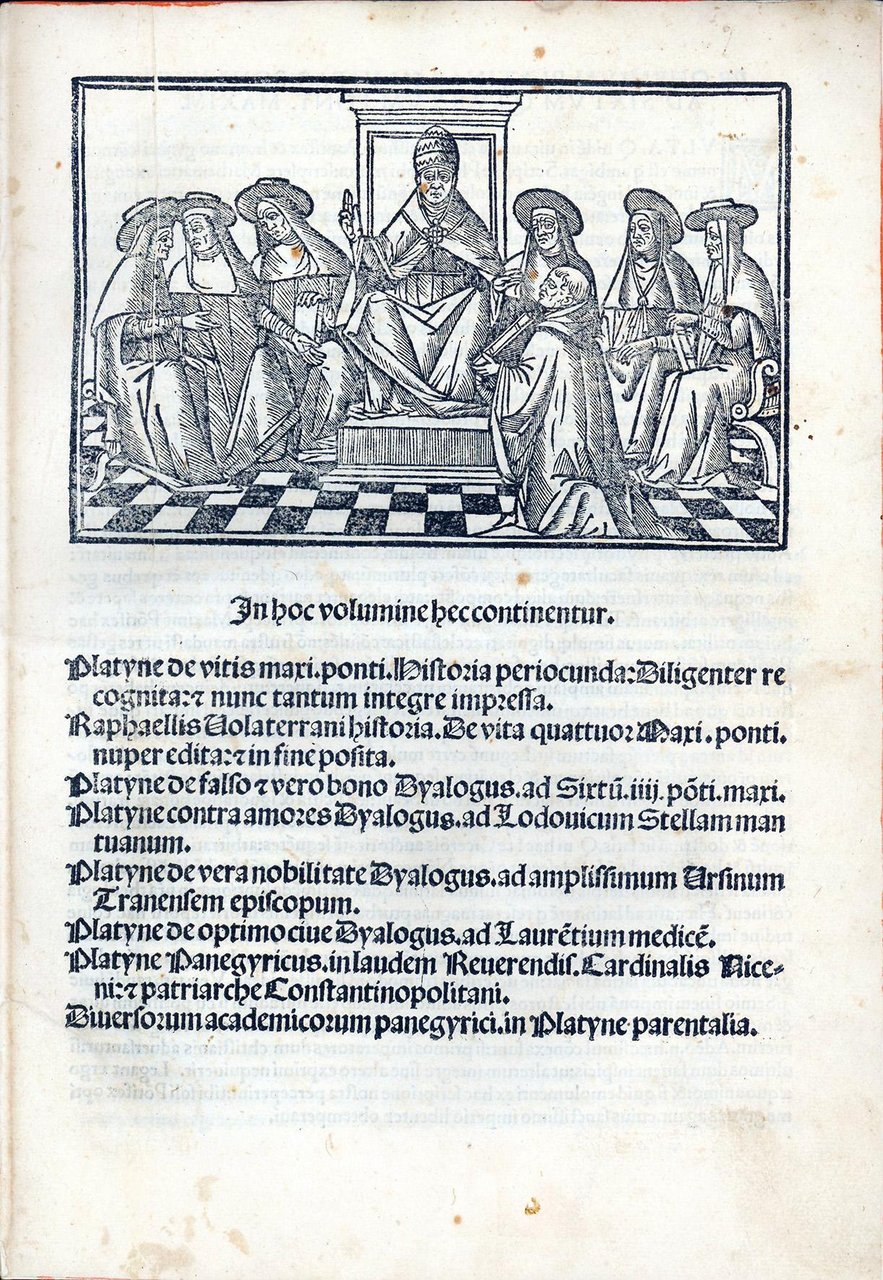 In hoc volumine hec continentur.
Platyne de vitis maxi. ponti. Historia periocunda: Diligenter re
cognita: ⁊ nunc tantum integre impressa.
Raphaellis Volaterrani historia. De vita quattuor Maxi. ponti.
nuper edita: ⁊ in fine posita.
Platyne de falso ⁊ vero bono Dyalogus. ad Sixtū. iiij. pōti. maxi.
Platyne contra amores Dyalogus. ad Lodouicum Stellam man
tuanum.
Platyne de vera nobilitate Dyalogus. ad amplissimum Ursinum
Tranensem episcopum.
Platyne de optimo ciue Dyalogus. ad Laurētium medicē.
Platyne Panegyricus. in laudem Reuerendis. Cardinalis Nice-
ni: ⁊ patriarche Constantinopolitani.
Diuersorum academicorum panegyrici. in Platyne parentalia.